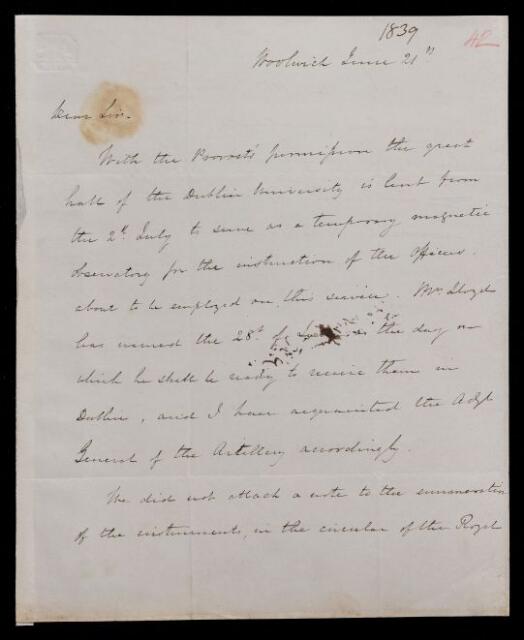 1839
42
Woolwich June 21st
Dear Sir.
With the Provost's permission the great
hall of the Dublin University is lent from
the 2d July to serve as a temporary magnetic
observatory for the instruction of the officers
about to be employed on this service. Mr Lloyd
has named the 28th of as the day on
which he shall be ready to receive them in
Dublin, and I have acquainted the Adjt
General of the Artillery accordingly.
We did not attach a note to the enumeration
of the instruments, in the circular of the Royal